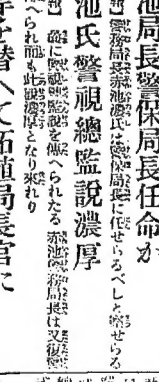 池局長警保局長任命か
警務局長赤池濃氏は警保局長に任せらるべしと察せらる
池氏警視總監說濃厚
曩に警視總監說を傳へられたる赤池警務局長は又復
へられ而も此說濃厚となり來れり
へて拓殖局長官に